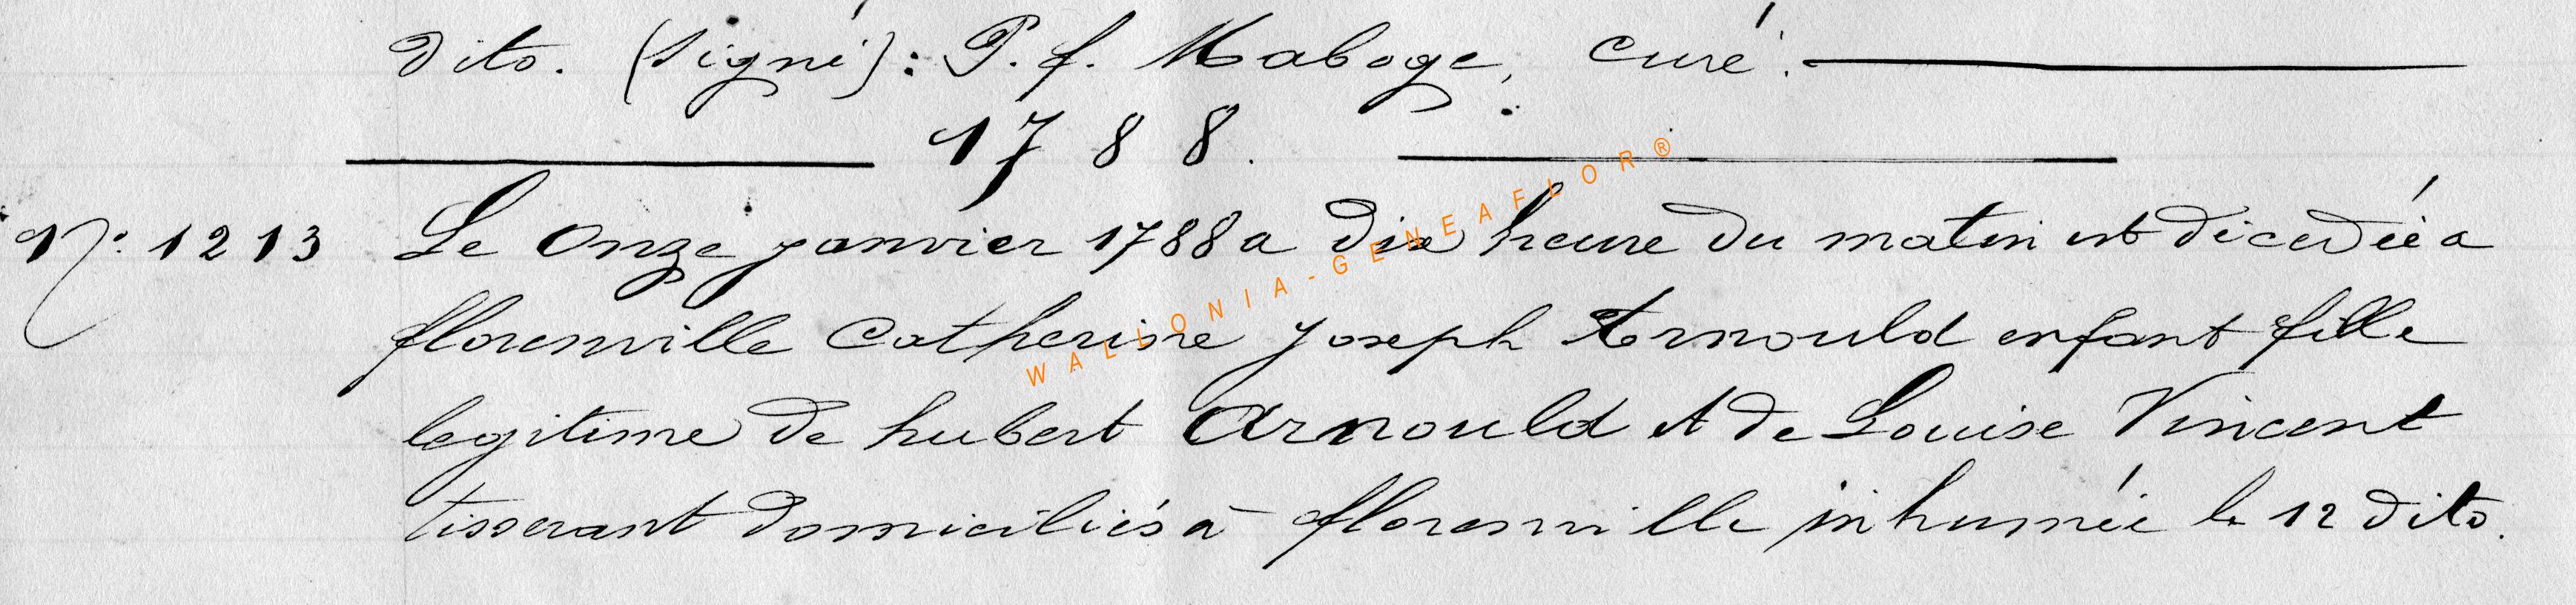 dito. (signé): P. f. Maboge, curé.
1788.
N: 1213 Le onze janvier 1788 a dix heure du matin est décedéé a
florenville Catherine Joseph Arnould enfant fille
legitime de hubert Arnould et de Louise Vincent
tisserant domiciliés à florenville inhumée le 12 dito.
WALLONIA-GENEAFLOR®